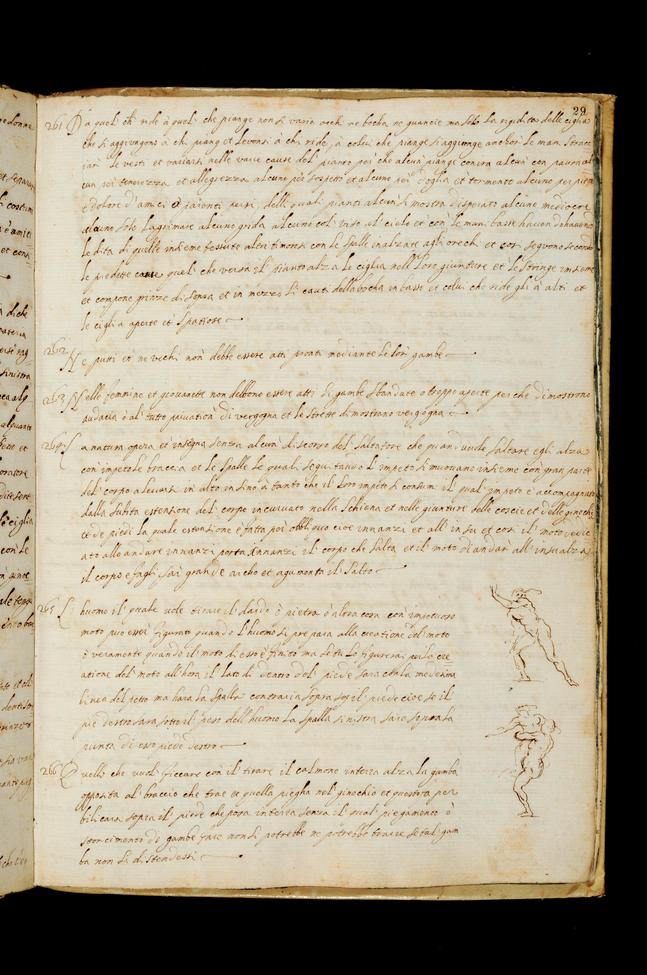 29
261 Da quel ch ride à quel che piange non si varia ochi ne bocha ne guancie ma solo la rigidita delle ciglia
che si aggiungono à chi piange et levansi à chi ride, à colui che piange si aggiunge anchor le mani strac
iar le vesti et variansi nelle varie cause del pianto poi che alcun piange con ira alcun con paura al
cun per tenerezza et allegrezza alcuno per sospetto et alcuno per doglia et tormento alcuno per pieta
e dolore d'amici ò parenti persi, delli quali pianti alcun si mostra disperato alcuno mediocre
alcuno solo lagrimare alcuno grida alcuno col viso al cielo et con le mani basse havendo
le dita di quelle insieme tessute altri timorosi con le spalle inalzate agli orechi et cosi seguono secondo
le predette cause quel che versa il pianto alza le ciglia nelle loro giunture et le stringe insieme
et compone grinze di sopra et in mezzo li canti della bocha in basso et colui che ride gli à alti et
le ciglia aperte et spatiose
262 Ne putti et ne vechi non debbe essere atti pronti mediante le lor gambe
263 Nelle femmine et giovanette non debbono essere atti di gambe sbandate o troppo aperte perche dimostrono
audacia o al tutto privation di vergogna et le strette dimostrono vergogna
264 La natura opera et insegna senza alcun discorso del saltatore che quando vuole saltare egli alza
con impeto le braccia et le spalle le quali seguitando l'impeto si muovano insieme con gran parte
del corpo a levarsi in alto insino à tanto che il loro impeto si consumi il qual impeto è accompagnato
dalla subita estensione del corpo incurvato nella schiena et nelle giunture delle coscie et delle ginochi
et de piedi la quale estensione è fatta per obliquo cioe innanzi et all'insu et cosi il moto dedic
ato allo andare innanzi porta innanzi il corpo che salta et il moto di andar all'insu alza
il corpo e fagli far grande archo et augumenta il salto
265 L'huomo il quale vole tirare il dardo ò pietra ò altra cosa con impetuoso
moto puo essere figurato quando l'huomo si prepara alla creatione del moto
ò veramente quando il moto di esso è finito ma se tu lo figurerai per la cre
atione del moto all'hora il lato di dentro del piede sara con la medesima
linea del petto ma hara la spalla contraria sopra il piede cioe se il
pie destro sara sotto il peso dell'huomo la spalla sinistra sara sopra la
punta di esso piede destro
266 Quello che vuol ficcare con il tirare il calmone in terra alza la gamba
opposita al braccio che trae et quella piegha nel ginochio et questo per
bilicarsi sopra il piede che posa in terra senza il qual piegamento ò
storcimento di gambe fare non si potrebbe ne potrebbe trarre se tal gam
ba non si distendessi